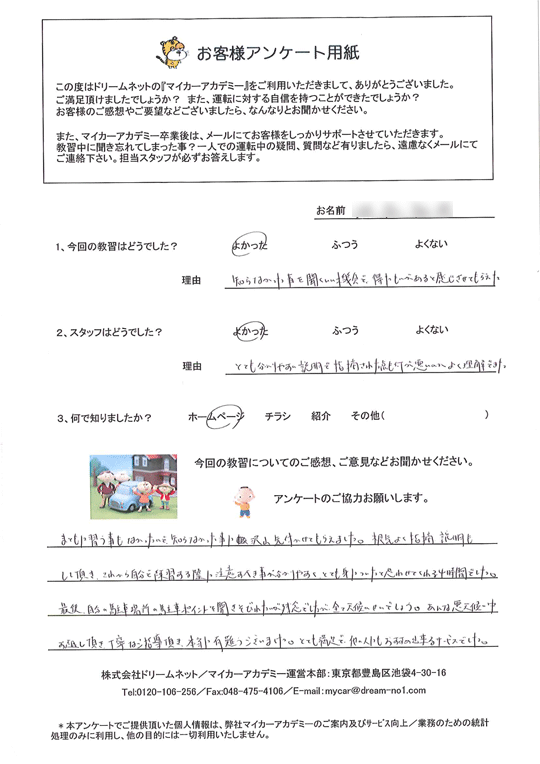 お客様アンケート用紙
この度はドリームネットの『マイカーアカデミー』をご利用いただきまして、ありがとうございました。
ご満足頂けましたでしょうか？ また、運転に対する自信を持つことができたでしょうか？
お客様のご感想やご要望などございましたら、なんなりとお聞かせください。
また、マイカーアカデミー卒業後は、メールにてお客様をしっかりサポートさせていただきます。
教習中に聞き忘れてしまった事？一人での運転中の疑問、質問など有りましたら、遠慮なくメールにて
ご連絡下さい。担当スタッフが必ずお答えします。
お名前
1、今回の教習はどうでした？ よかった ふつう よくない
理由 知らなかった事を聞くいい機会で、
2、スタッフはどうでした？ よかった ふつう よくない
理由 とても分かりやすい説明で指摘された点も何が悪いのかよく理解できた
3、何で知りましたか？ ホームページ チラシ 紹介 その他( )
今回の教習についてのご感想、ご意見などお聞かせください。
アンケートのご協力お願いします。
知らなかった事に沢山気付かせてもらえました。根気よく指摘、説明も
して頂き、これから自分で練習する際に注意すべき事が分かりやすく、とても身についたと思わせてくれる4時間でした。
最後、自分の駐車場所の駐車ポイントを聞きそびれたのが残念でしたが、
お越し頂き丁寧なご指導頂き、本当に有難うございました。とても満足で、他の人にもお勧め出来るサービスでした。
株式会社ドリームネット／マイカーアカデミー運営本部：東京都豊島区池袋4-30-16
Tel:0120-106-256／Fax:048-475-4106／E-mail:mycar@dream-no1.com
＊本アンケートでご提供頂いた個人情報は、弊社マイカーアカデミーのご案内及びサービス向上／業務のための統計
処理のみに利用し、他の目的には一切利用いたしません。